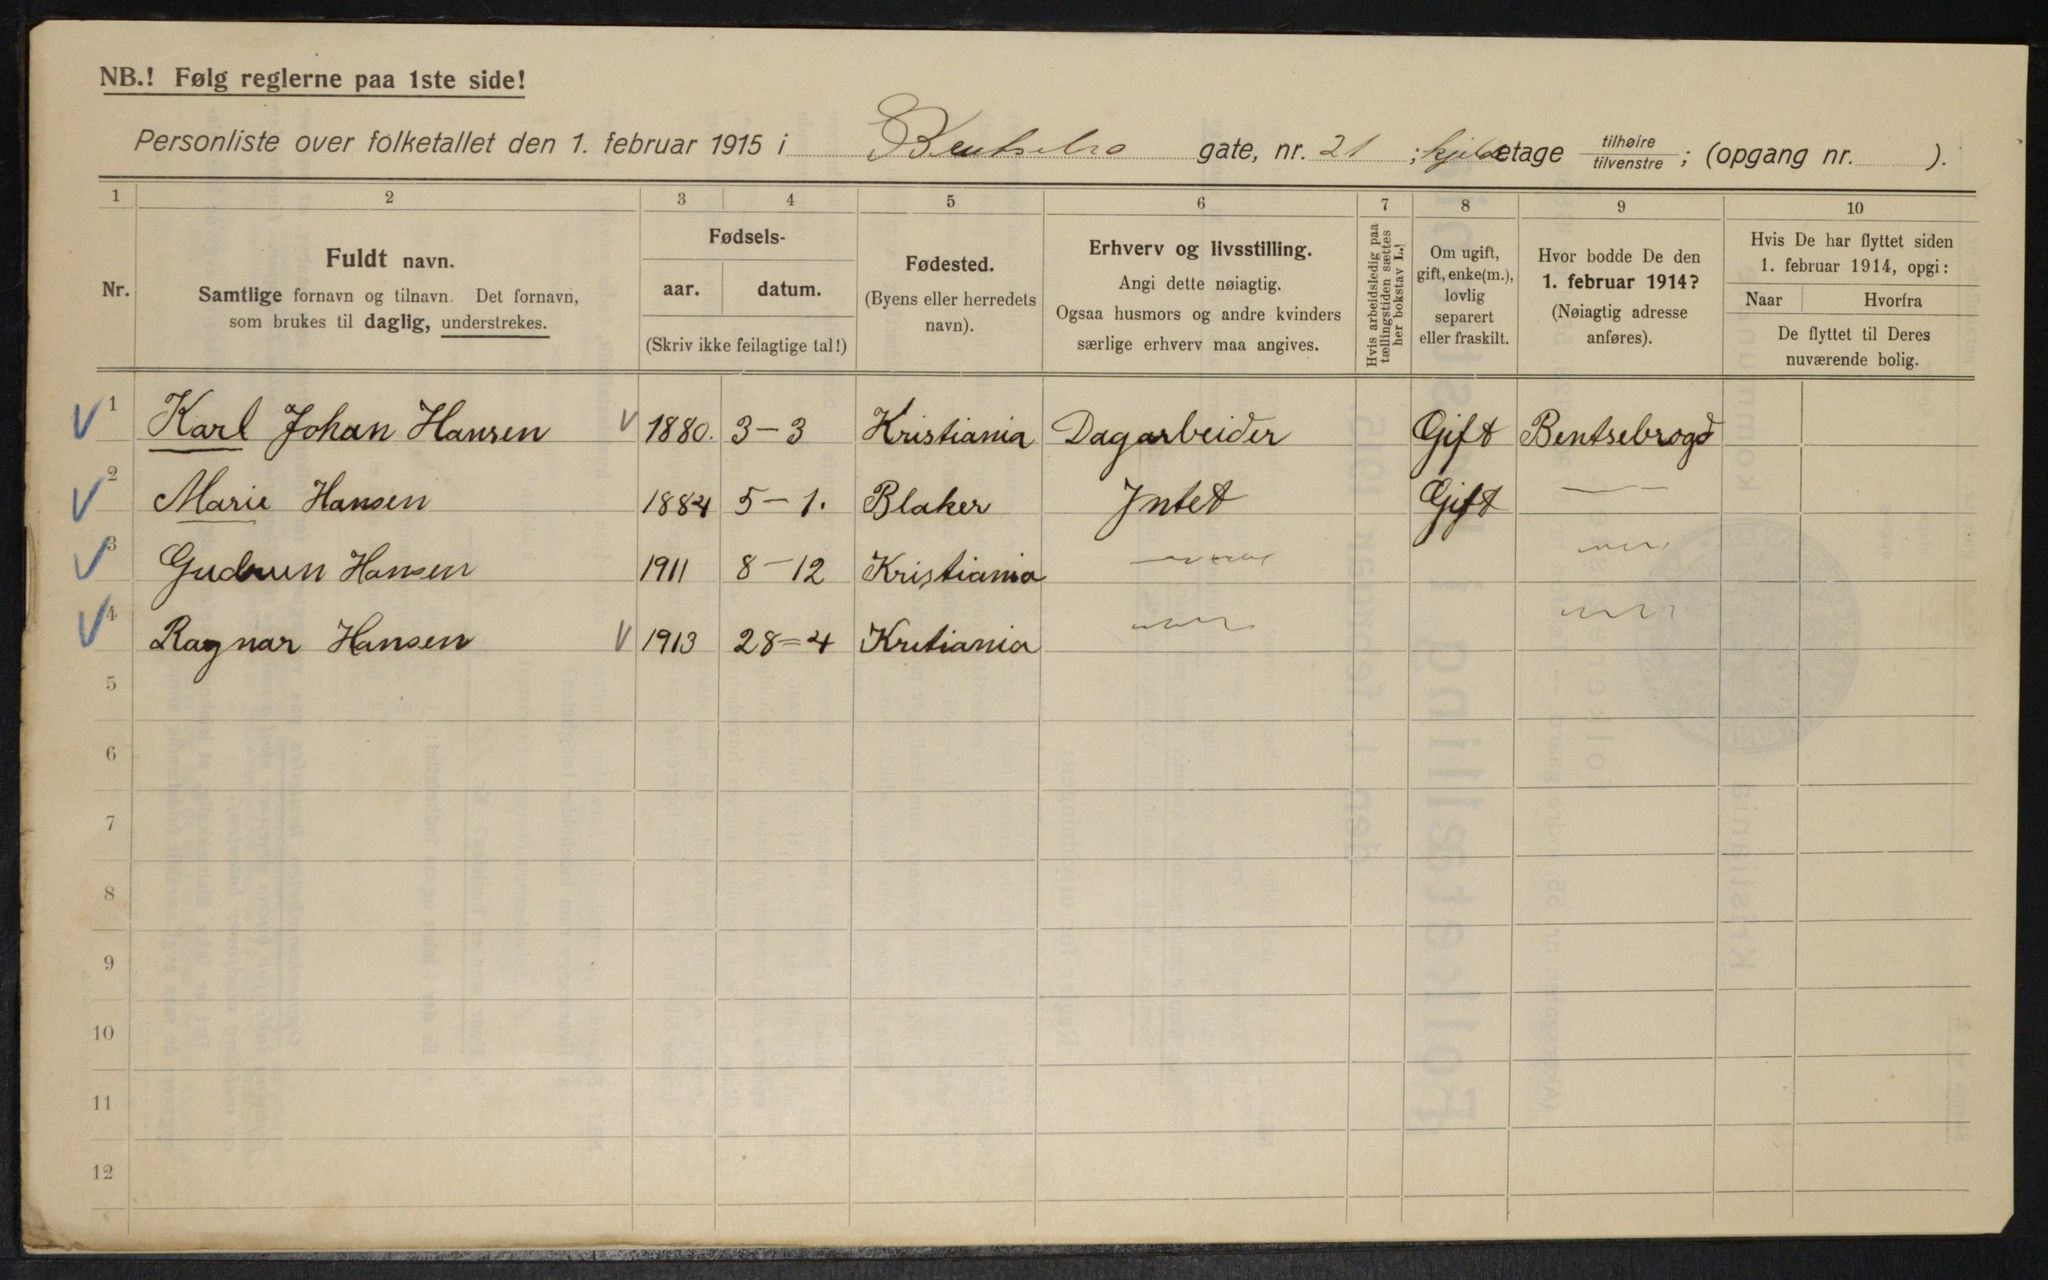 NB.! Følg reglerne paa 1ste side!
Personliste over folketallet den 1. februar 1915 i Bentsebro gate, nr. 21 ; kjeld etage tilhøire tilvenstre ; (opgang nr. ).
1 2 3 4 5 6 7 8 9 10
Nr.
Fuldt navn.
Samtlige fornavn og tilnavn. Det fornavn,
som brukes til daglig, understrekes.
Fødsels-
aar. datum.
(Skriv ikke feilagtige tal!)
Fødested.
(Byens eller herredets
navn).
Erhverv og livsstilling.
Angi dette nøiagtig.
Ogsaa husmors og andre kvinders
særlige erhverv maa angives.
Hvis arbeidsledig paa
tællingstiden sættes
her bokstav L.!
Om ugift,
gift, enke(m.),
lovlig
separert
eller fraskilt.
Hvor bodde De den
1. februar 1914?
(Nøiagtig adresse
anføres).
Hvis De har flyttet siden
1. februar 1914, opgi:
Naar Hvorfra
De flyttet til Deres
nuværende bolig.
1 Karl Johan Hansen 1880. 3-3 Kristiania Dagarbeider Gift Bentsebrogd
2 Marie Hansen 1884 5-1. Blaker Intet Gift —
3 Gudrun Hansen 1911 8-12 Kristiania
4 Ragnar Hansen 1913 28=4 Kretiania
5
6
7
8
9
10
11
12